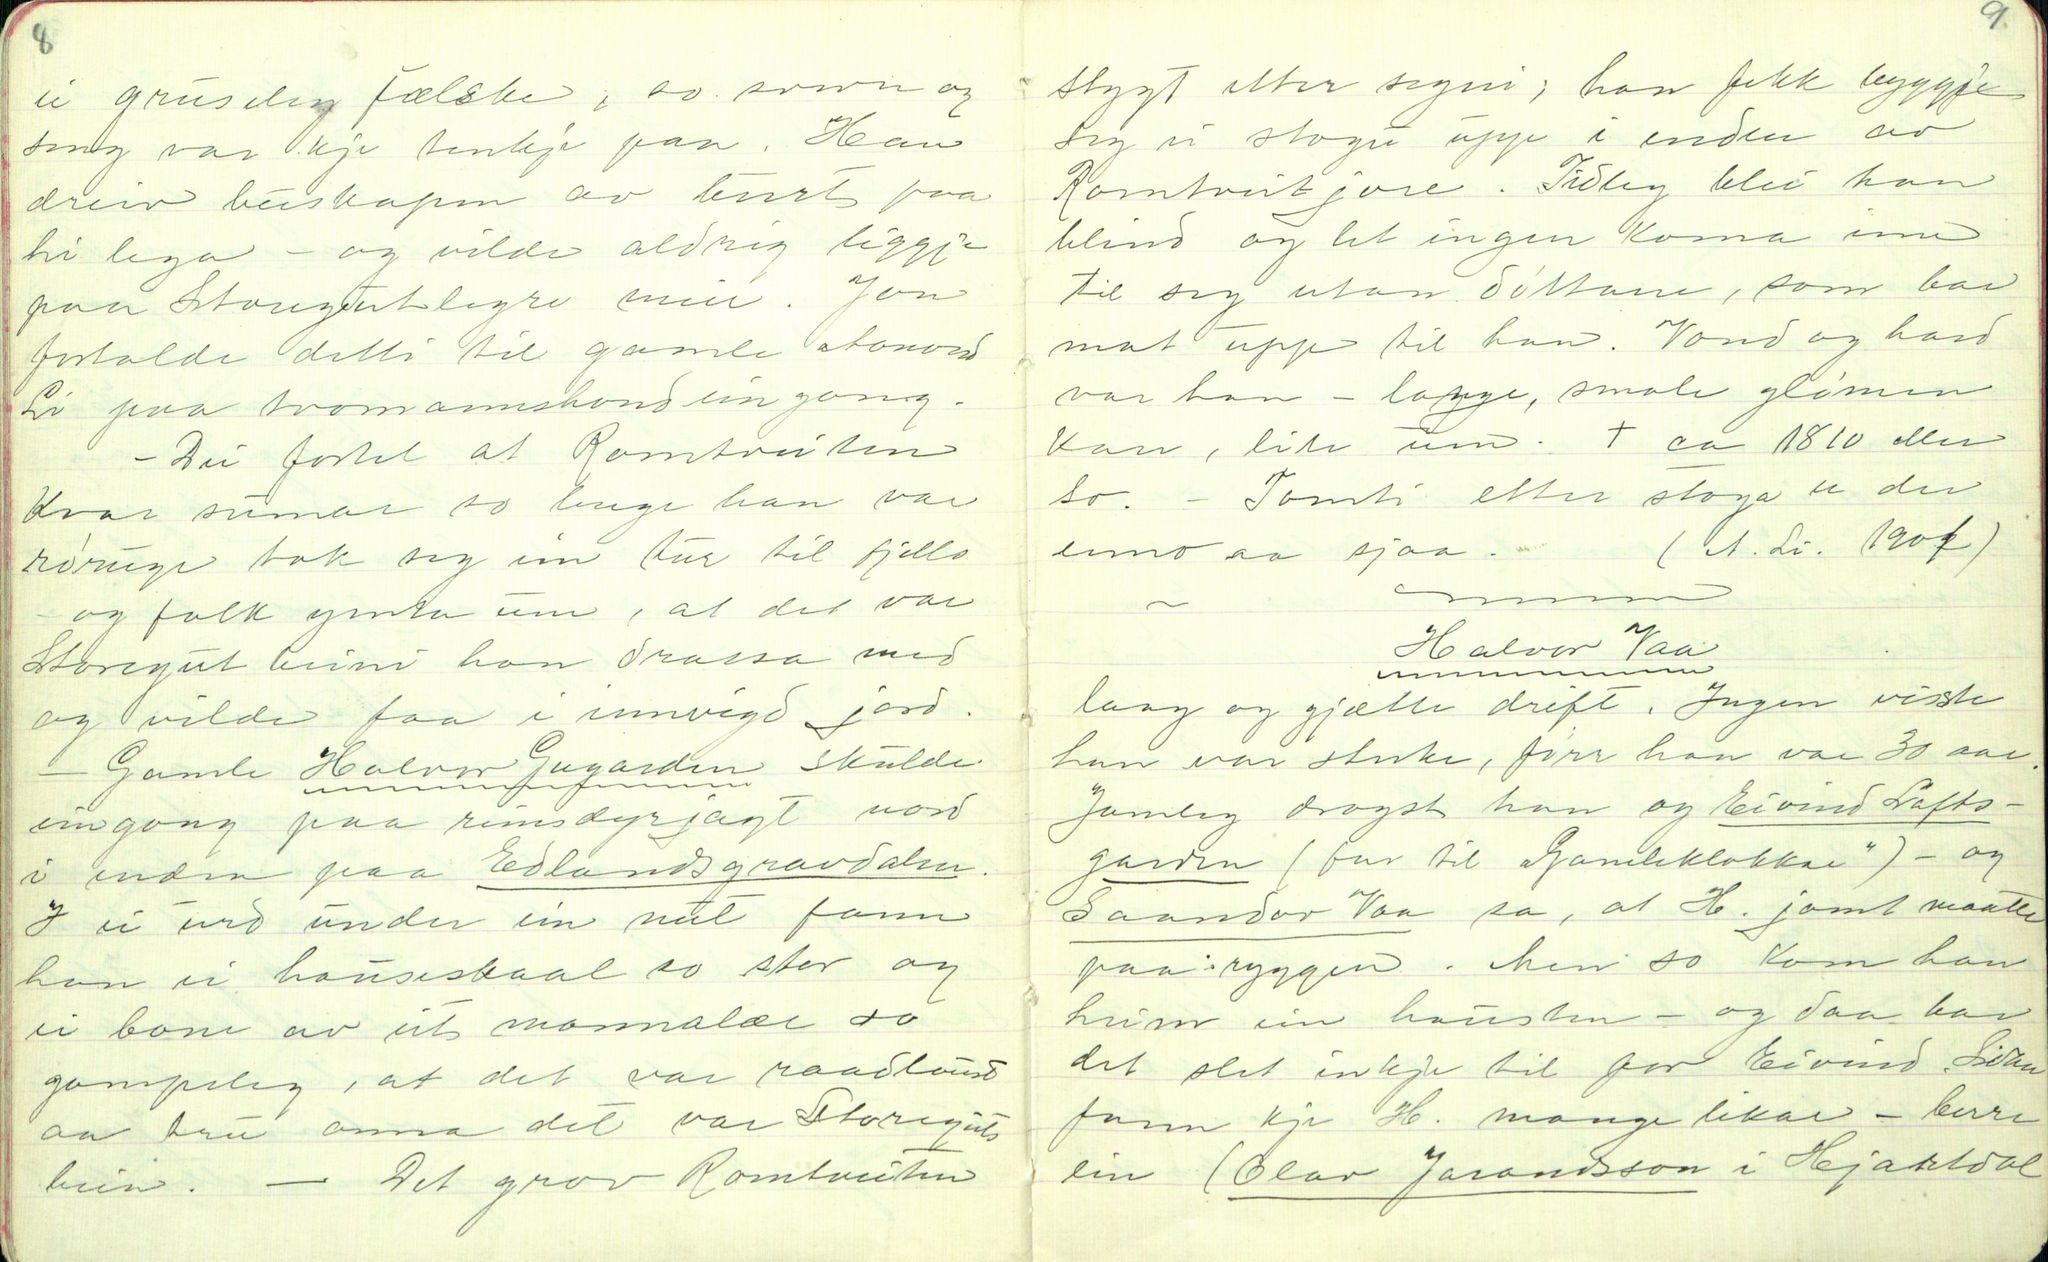 8
ei gruseleg fælske, so svevn og
seng var kje tenkje paa. Han
dreiv beiskapen av burt paa
hi lega – og vilde aldrig liggje
paa Storegutlegre meir. Jon
fortalde detti til gamle Havord
Li paa tvomannshond ein gong.
– Dei fortel at Romtveiten
kvar sumar so lenge han var
rórug tok seg ein tur til fjells
– og folk ymta um, at det var
Storegut beini han drassa med
og vilde faa i innvigd jord.
– Gamle Halvor Gugarden skulde
eingong paa reinsdyrjagt nord
i enden paa Edlandsgravdalen.
I ei urd under ein nut fann
han ei hauseskaal so stor og
ei bone av eit mannalær so
gompeleg, at det var raadlaust
aa tru anna det var Storeguts
bein. – Det grov Romtveiten
9
stygt etter segni; han fekk byggje
seg ei stogu uppe i enden av
Romtveitjore. Tidleg blei han
blind og let ingen koma inn
til seg utan dóttare, som bar
mat uppe til han. Vond og hard
var han – lange, smale glómen
kar, lite um. † ca 1810 eller
so. – Tomti etter stoga er der
enno aa sjaa. (H. Li. 1907)
~
Halvor Vaa
laag og gjætte drift. Ingen visste
han var sterke, fórr han var 30 aar.
Jamleg drogst han og Eivind Lofts-
garden (far til "Gamleklokkar") – og
Saandor Vaa sa, at H. jamt maatte
paa ryggen. Men so kom han
heim ein hausten – og daa bar
det slet inkje til for Eivind. Sidan
fann kje H. mange likar – berre
ein (Olav Jarandsson i Hjartdal